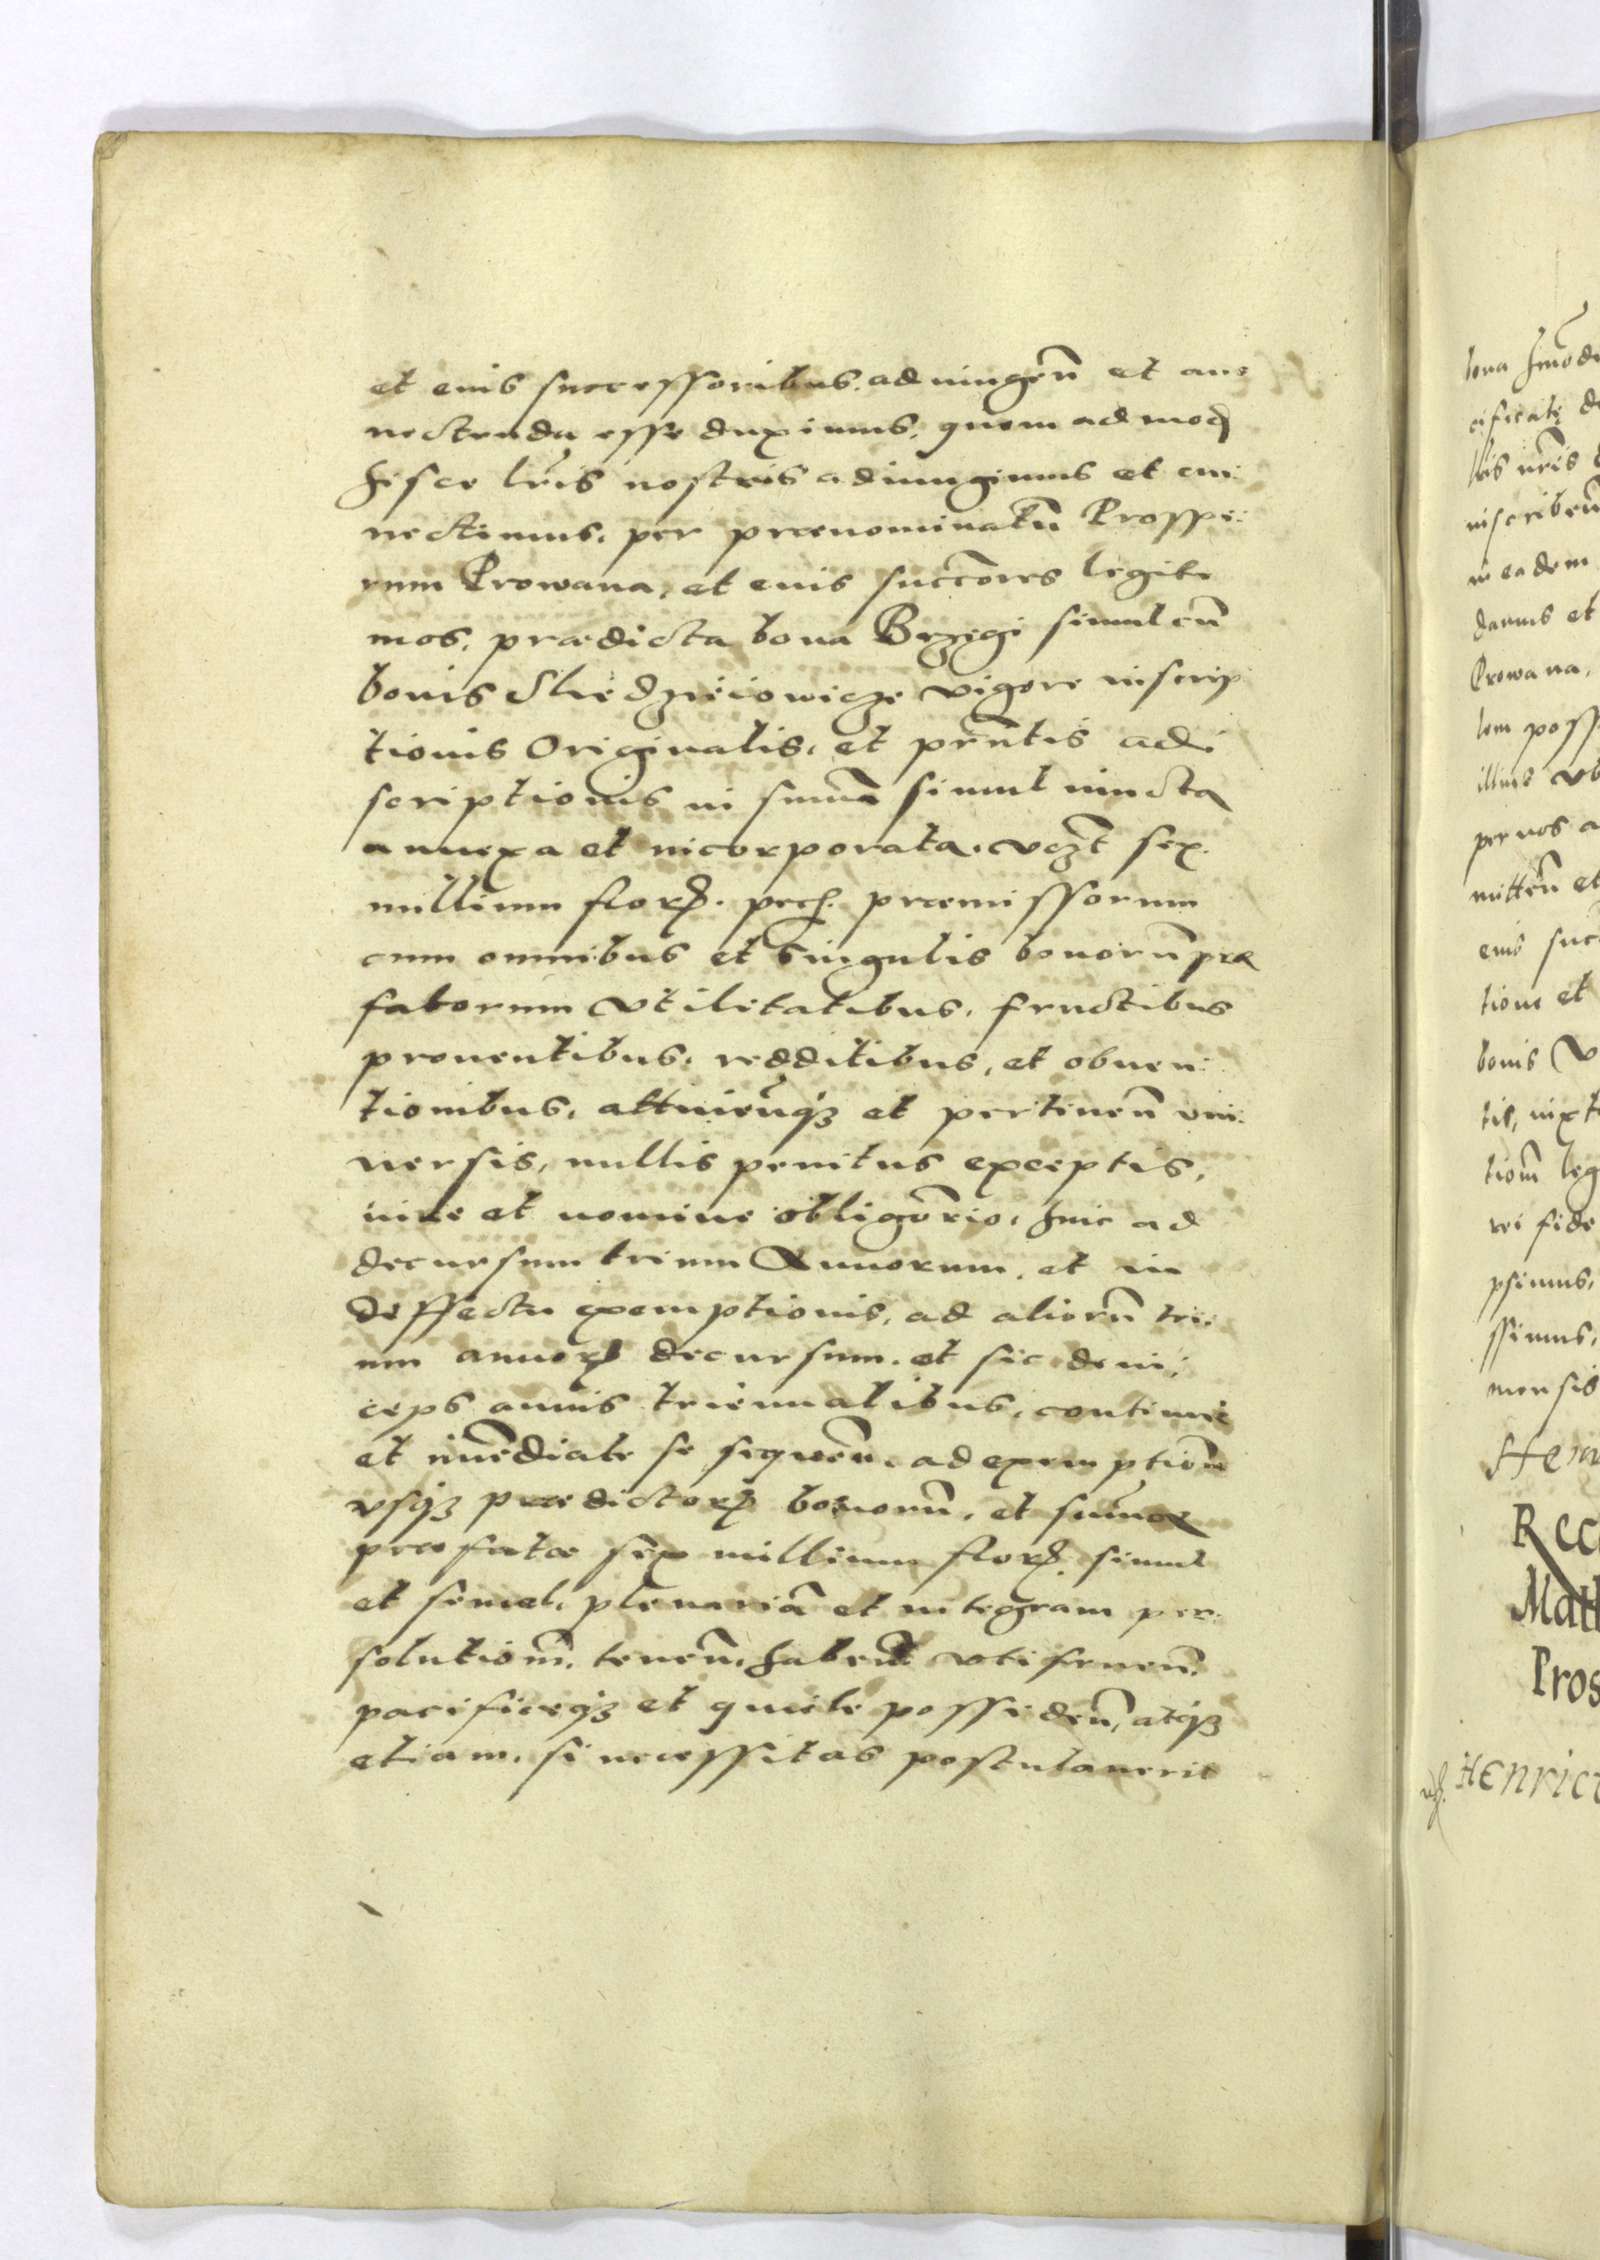 et eius successoribus, adiungen̄ et an=
nectenda esse duximus, quem ad mod
hisce lr̄is nostris adiungimus et cui
nectimus, per prænominatū Prospe:
rum Prowana, et eius succōres legiti
mos, prædicta bona Brzegi simul cū
bonis Sliedzieiowicze vigore inscrip
tionis Originalis, et prn̄tis adi
scriptionis in sum̄a simul iuncta
annexa et incorporata, vczt sex
millium flor. pech. præmissorum
cum omnibus et singulis bonorū præ
fatorum vtilitatibus, fructibus
prouentibus, redditibus, et obuen:
tionibus, attinēnq3 et pertinen̄ vni:
uersis, nullis penitus exceptis,
iure et nomine obligōrio, hinc ad
decursum trium Annorum, et in
deffectu exemptionis, ad aliorū tri:
um annor decursum, et sic dein:
ceps annis triennalibus, continue
et im̄ediate se sequen̄, ad exemptiōne
vsq3 prædictor bonorū, et sum̄æ
præfatæ sex millium flor. simul
et semel, plenariā et integram per:
solutiom̄, tenen̄, haben̄ vti fruen̄,
pacificeq3 et quiete possiden̄, atq3
etiam, si necessitas postulauerit
bona
cificatę
lr̄is nr̄is
inscriben̄
in eadem
damus et
Prowana,
tem poss
illius vt
per nos a
mitten̄ et
eius suc
tione et
bonis V
tis, iuxt
tiom̄ leg
rei fide
psimus,
ssimus,
mensis
Hen
Recc
Matt
Pros
Henric